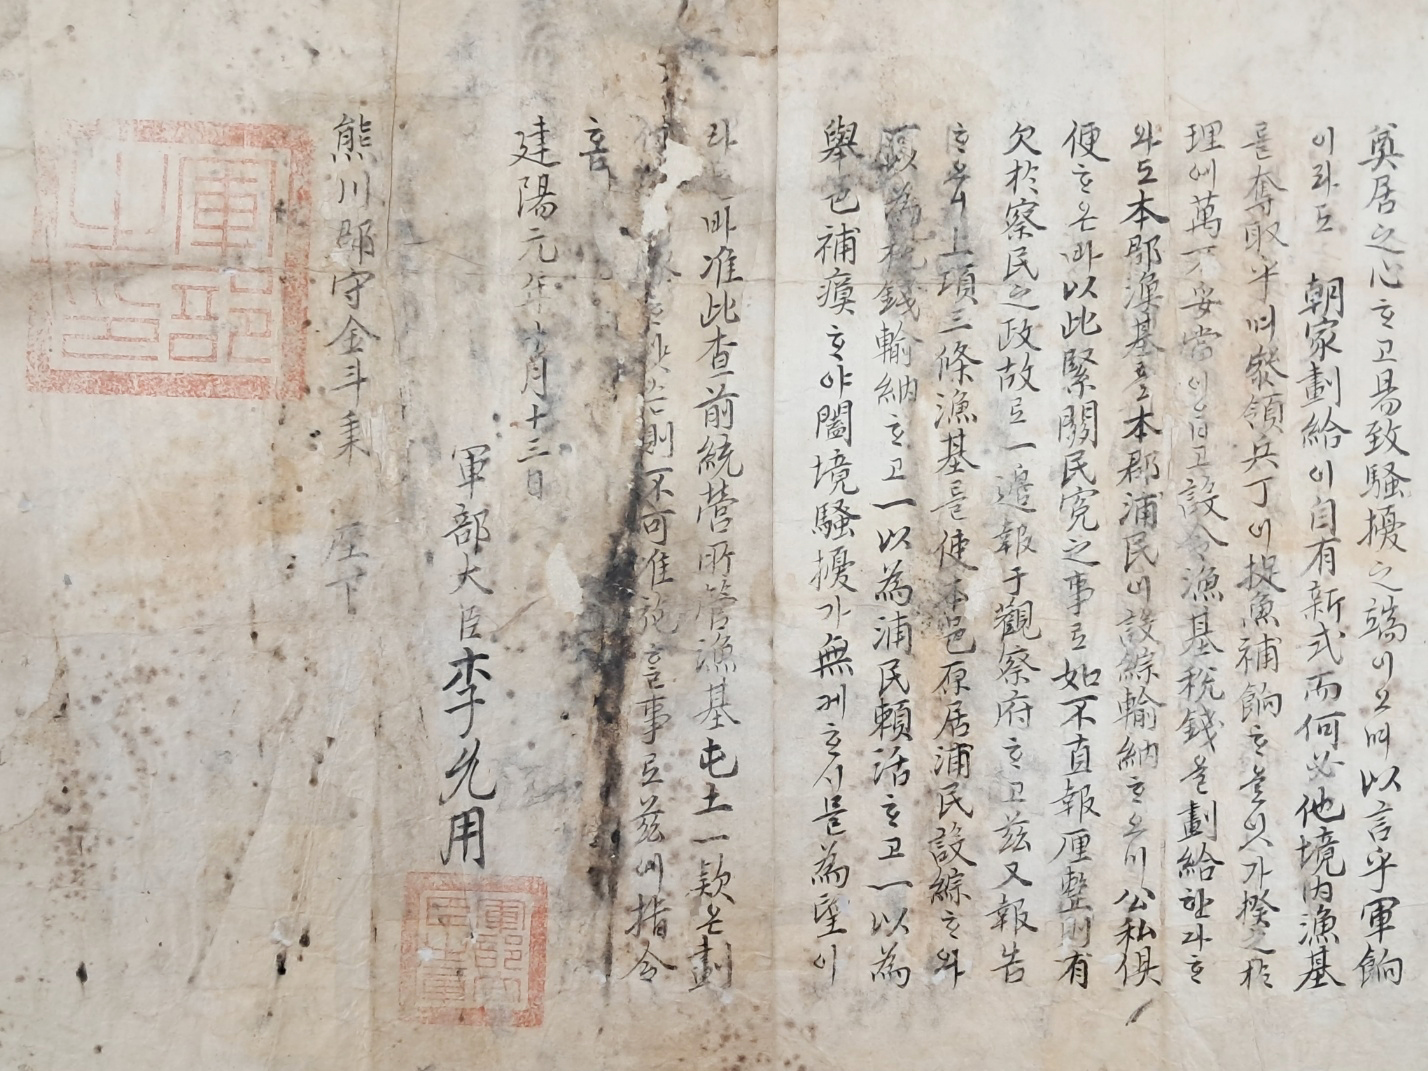 奠居之心ᄒᆞ고易致騷擾之端이오며以言乎軍餉
이라도 朝家劃給이自有新式而何必他境內漁基
를奪取乎며發領兵丁이捉魚補餉ᄒᆞ올잇가揆之於
理에萬不妥當이읍고設令漁基稅錢을劃給하라ᄒᆞ
와도本郡漁基로本郡浦民이設綜輸納ᄒᆞ오미公私俱
便ᄒᆞ온바以此緊關民寃之事로如不直報厘整則有
欠於察民之政故로一邊報于觀察府ᄒᆞ고玆又報告
ᄒᆞ오니上項三條漁基를使本邑原居浦民設綜ᄒᆞ와
以為稅錢輸納ᄒᆞ고一以為浦民賴活ᄒᆞ고一以為
擧邑補瘼ᄒᆞ야闔境騷擾가無케ᄒᆞ시믈為望이
라 바准此查前統營所管漁基屯土一款은劃
則不可准施홀事로玆에指令
홈
建陽元年 月十三日
軍部大臣李允用
熊川郡守金斗秉 座下
軍部之印
軍部大臣之章